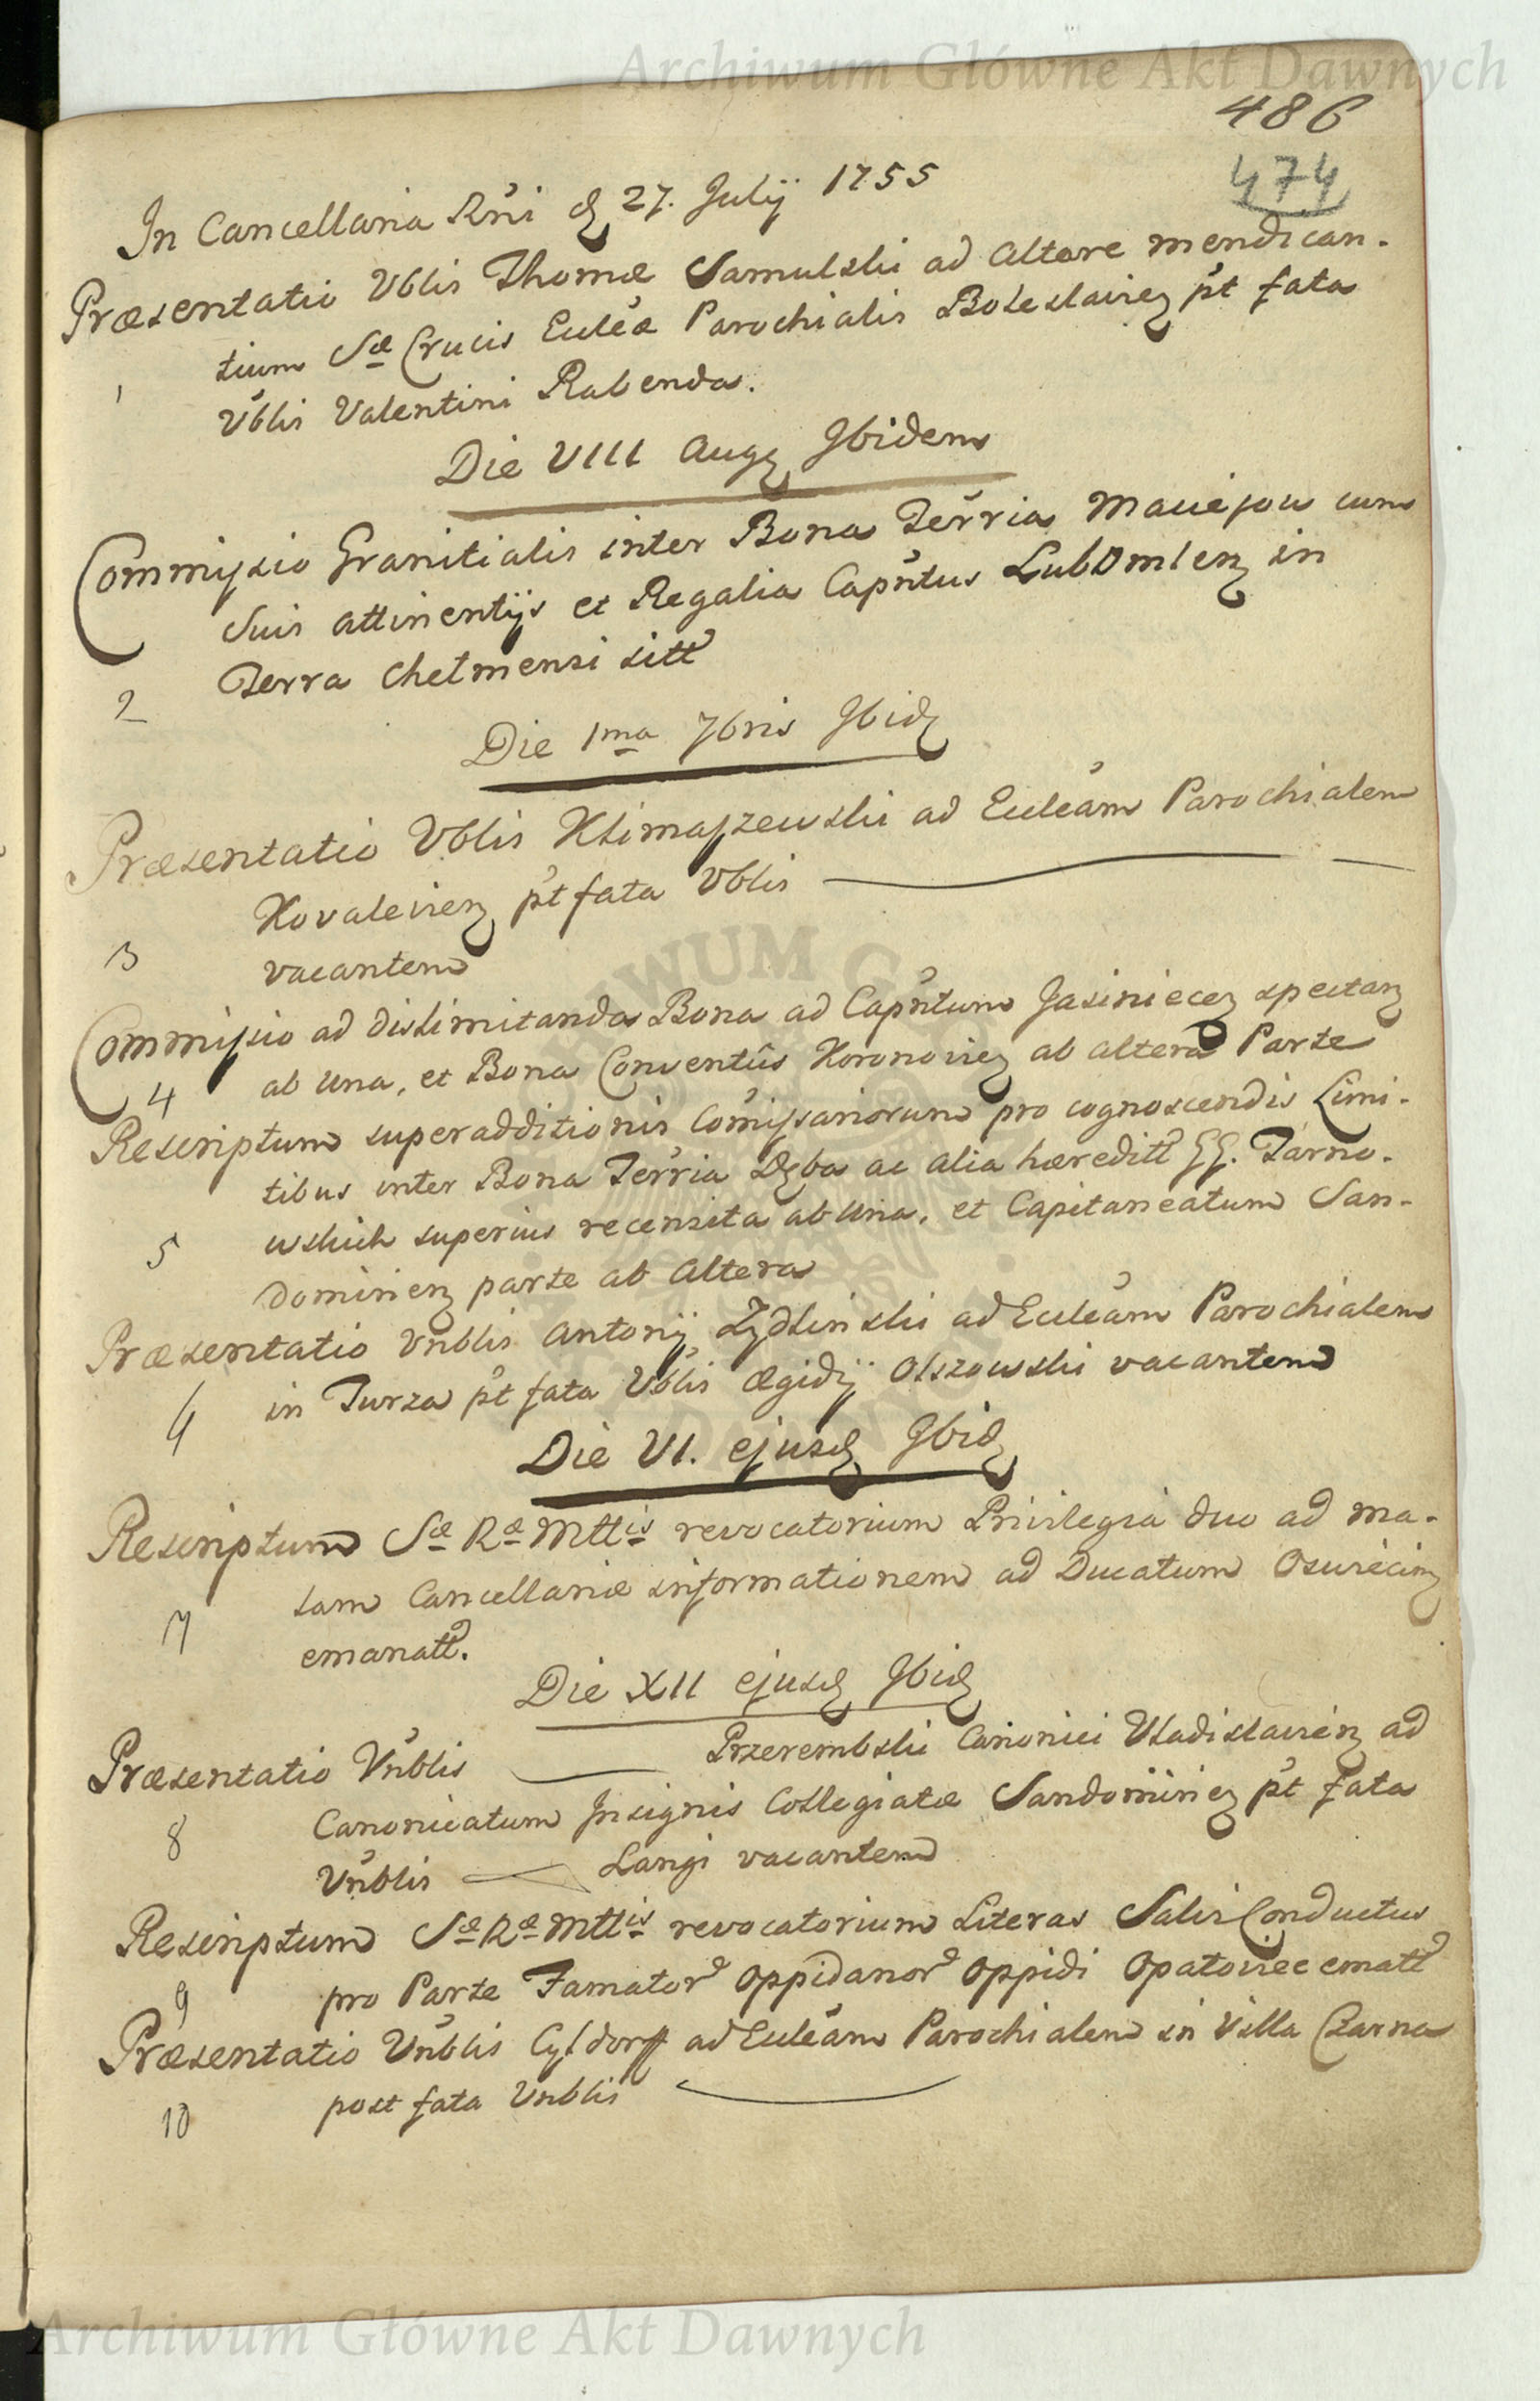 Archiwum Główne Akt Dawnych
486
474
In Cancellaria Rñi d. 27. Julij 1755
Præsentatio Vblis Thomæ Samulski ad Altare mendican-
tium Sæ Crucis Eccleæ Parochialis Boleslaviez p̃t fata
1
Vblis Valentini Rabenda.
Die VIII Augz Ibidem
Commissio Granitialis inter Bona Terria Maciejow cum
suis attinentijs et Regalia Capntus Lubomlenz in
2
Terra Chelmensi sitt
Die 1ma 7bris Ibidz
Præsentatio Vblis Klimaszewski ad Eccleam Parochialem
Kovalevienz p̃t fata Vblis
3
vacantem
Commissio ad dislimitanda Bona ad Capntum Jasiniecez spectanz
4
ab una, et Bona Conventûs Koronoviez ab altera Parte
Rescriptum superadditionis Comissariorum pro cognoscendis Limi-
tibus inter Bona Terria Dęba ac alia hæreditt GG. Tarno-
5
wskich superius recensita ab una, et Capitaneatum San-
domirienz parte ab altera
Præsentatio Vnblis Antonij Zydlinski ad Eccleam Parochialem
6
in Turza p̃t fata Vblis Ægidij Olszowski vacantem
Die VI. ejusdz Ibidz
Rescriptum Sæ Ræ Mttis revocatorium Privilegia duo ad ma-
lam Cancellariæ informationem ad Ducatum Osviecimz
7
emanatt.
Die XII ejusdz Ibidz
Præsentatio Vnblis Przerembski Canonici Vladislavienz ad
8
Canonicatum Insignis Collegiatæ Sandomiriez p̃t fata
Vnblis Langi vacantem
Rescriptum Sæ Ræ Mttis revocatorium Literas Salvi Conductus
9
pro Parte Famator Oppidanor Oppidi Opatowiec ematt
Præsentatio Vnblis Cyldorff ad Eccleam Parochialem in Villa Czarna
10
post fata Vnblis
Archiwum Główne Akt Dawnych